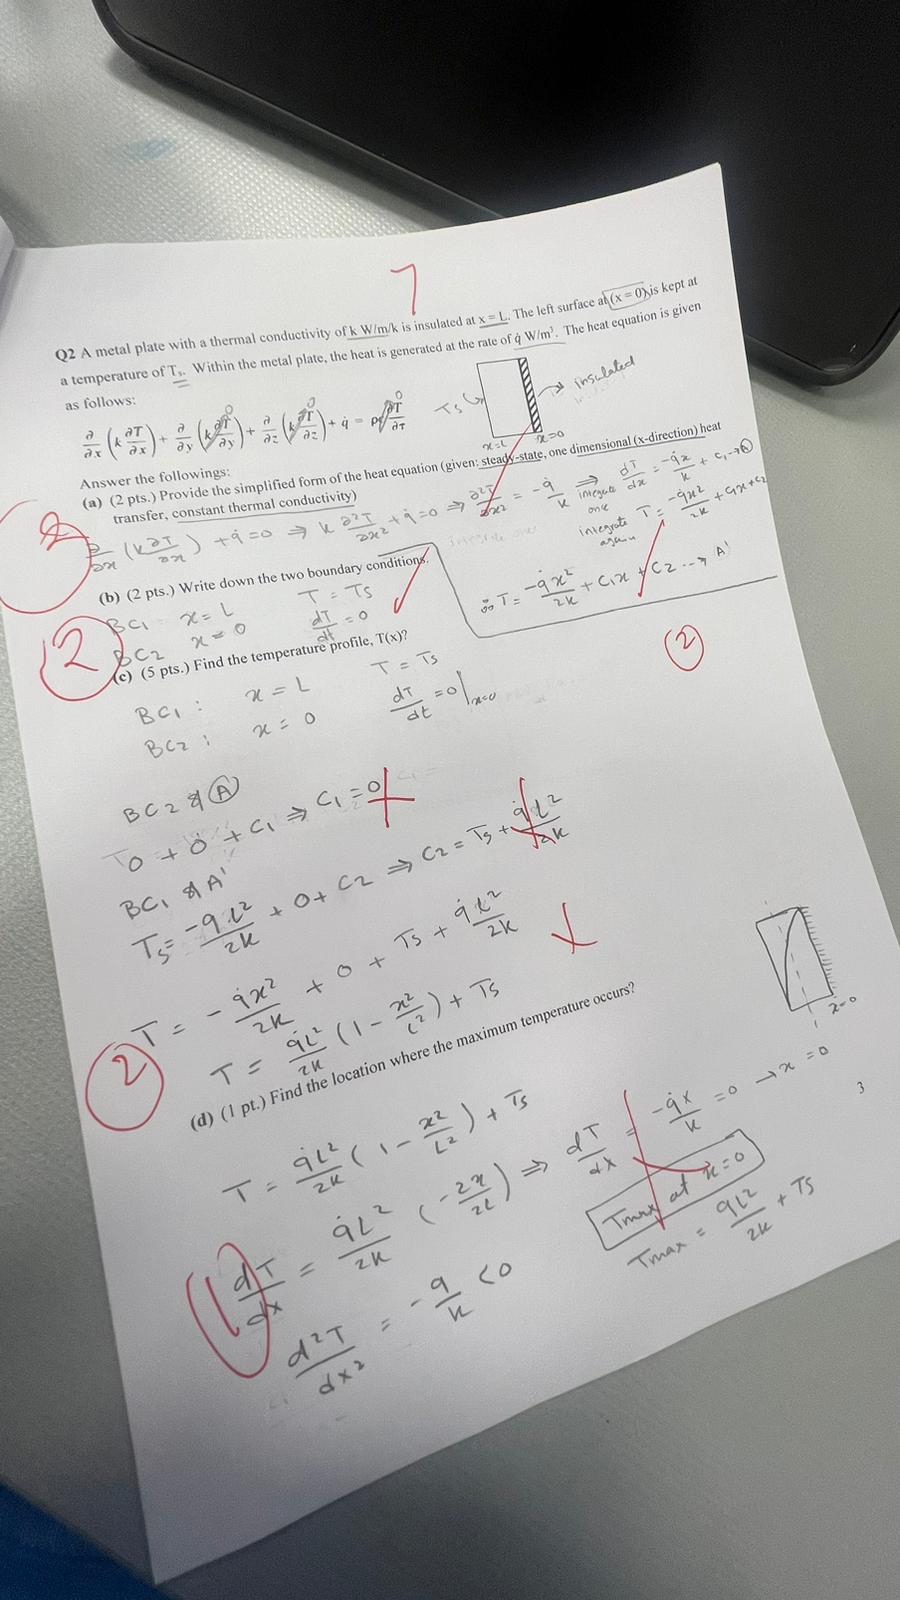 7
Q2 A metal plate with a thermal conductivity of k W/m/k is insulated at x = L. The left surface at (x = 0) is kept at
a temperature of Ts. Within the metal plate, the heat is generated at the rate of q̇ W/m³. The heat equation is given
as follows:
∂/∂x (k ∂T/∂x) + ∂/∂y (k ∂T/∂y) + ∂/∂z (k ∂T/∂z) + q̇ = ρc ∂T/∂τ
0 0 0
Ts
insulated
x=L x=0
Answer the followings:
(a) (2 pts.) Provide the simplified form of the heat equation (given: steady-state, one dimensional (x-direction) heat
transfer, constant thermal conductivity)
2
∂/∂x (k ∂T/∂x) + q̇ = 0 ⇒ k ∂²T/∂x² + q̇ = 0 ⇒ ∂²T/∂x² = -q̇/k ⇒ integrate one dT/dx = -q̇x/k + C1 → A
integrate again T = -q̇x²/2k + C1x + C2
∴ T = -q̇x²/2k + C1x + C2 --→ A'
(b) (2 pts.) Write down the two boundary conditions.
2
BC1 x = L T = Ts
BC2 x = 0 dT/dt = 0
(c) (5 pts.) Find the temperature profile, T(x)?
2
BC1 : x = L T = Ts
BC2 : x = 0 dT/dt = 0|x=0
BC2 & A
0 + 0 + C1 ⇒ C1 = 0
BC1 & A'
Ts = -q̇L²/2k + 0 + C2 ⇒ C2 = Ts + q̇L²/2k
T = -q̇x²/2k + 0 + Ts + q̇L²/2k
T = q̇L²/2k (1 - x²/L²) + Ts
2
x=0
(d) (1 pt.) Find the location where the maximum temperature occurs?
T = q̇L²/2k (1 - x²/L²) + Ts
dT/dx = q̇L²/2k (-2x/2L) ⇒ dT/dx = -q̇x/k = 0 → x = 0
1
Tmax at x=0
d²T/dx² = -q/k < 0
Tmax = qL²/2k + Ts
3